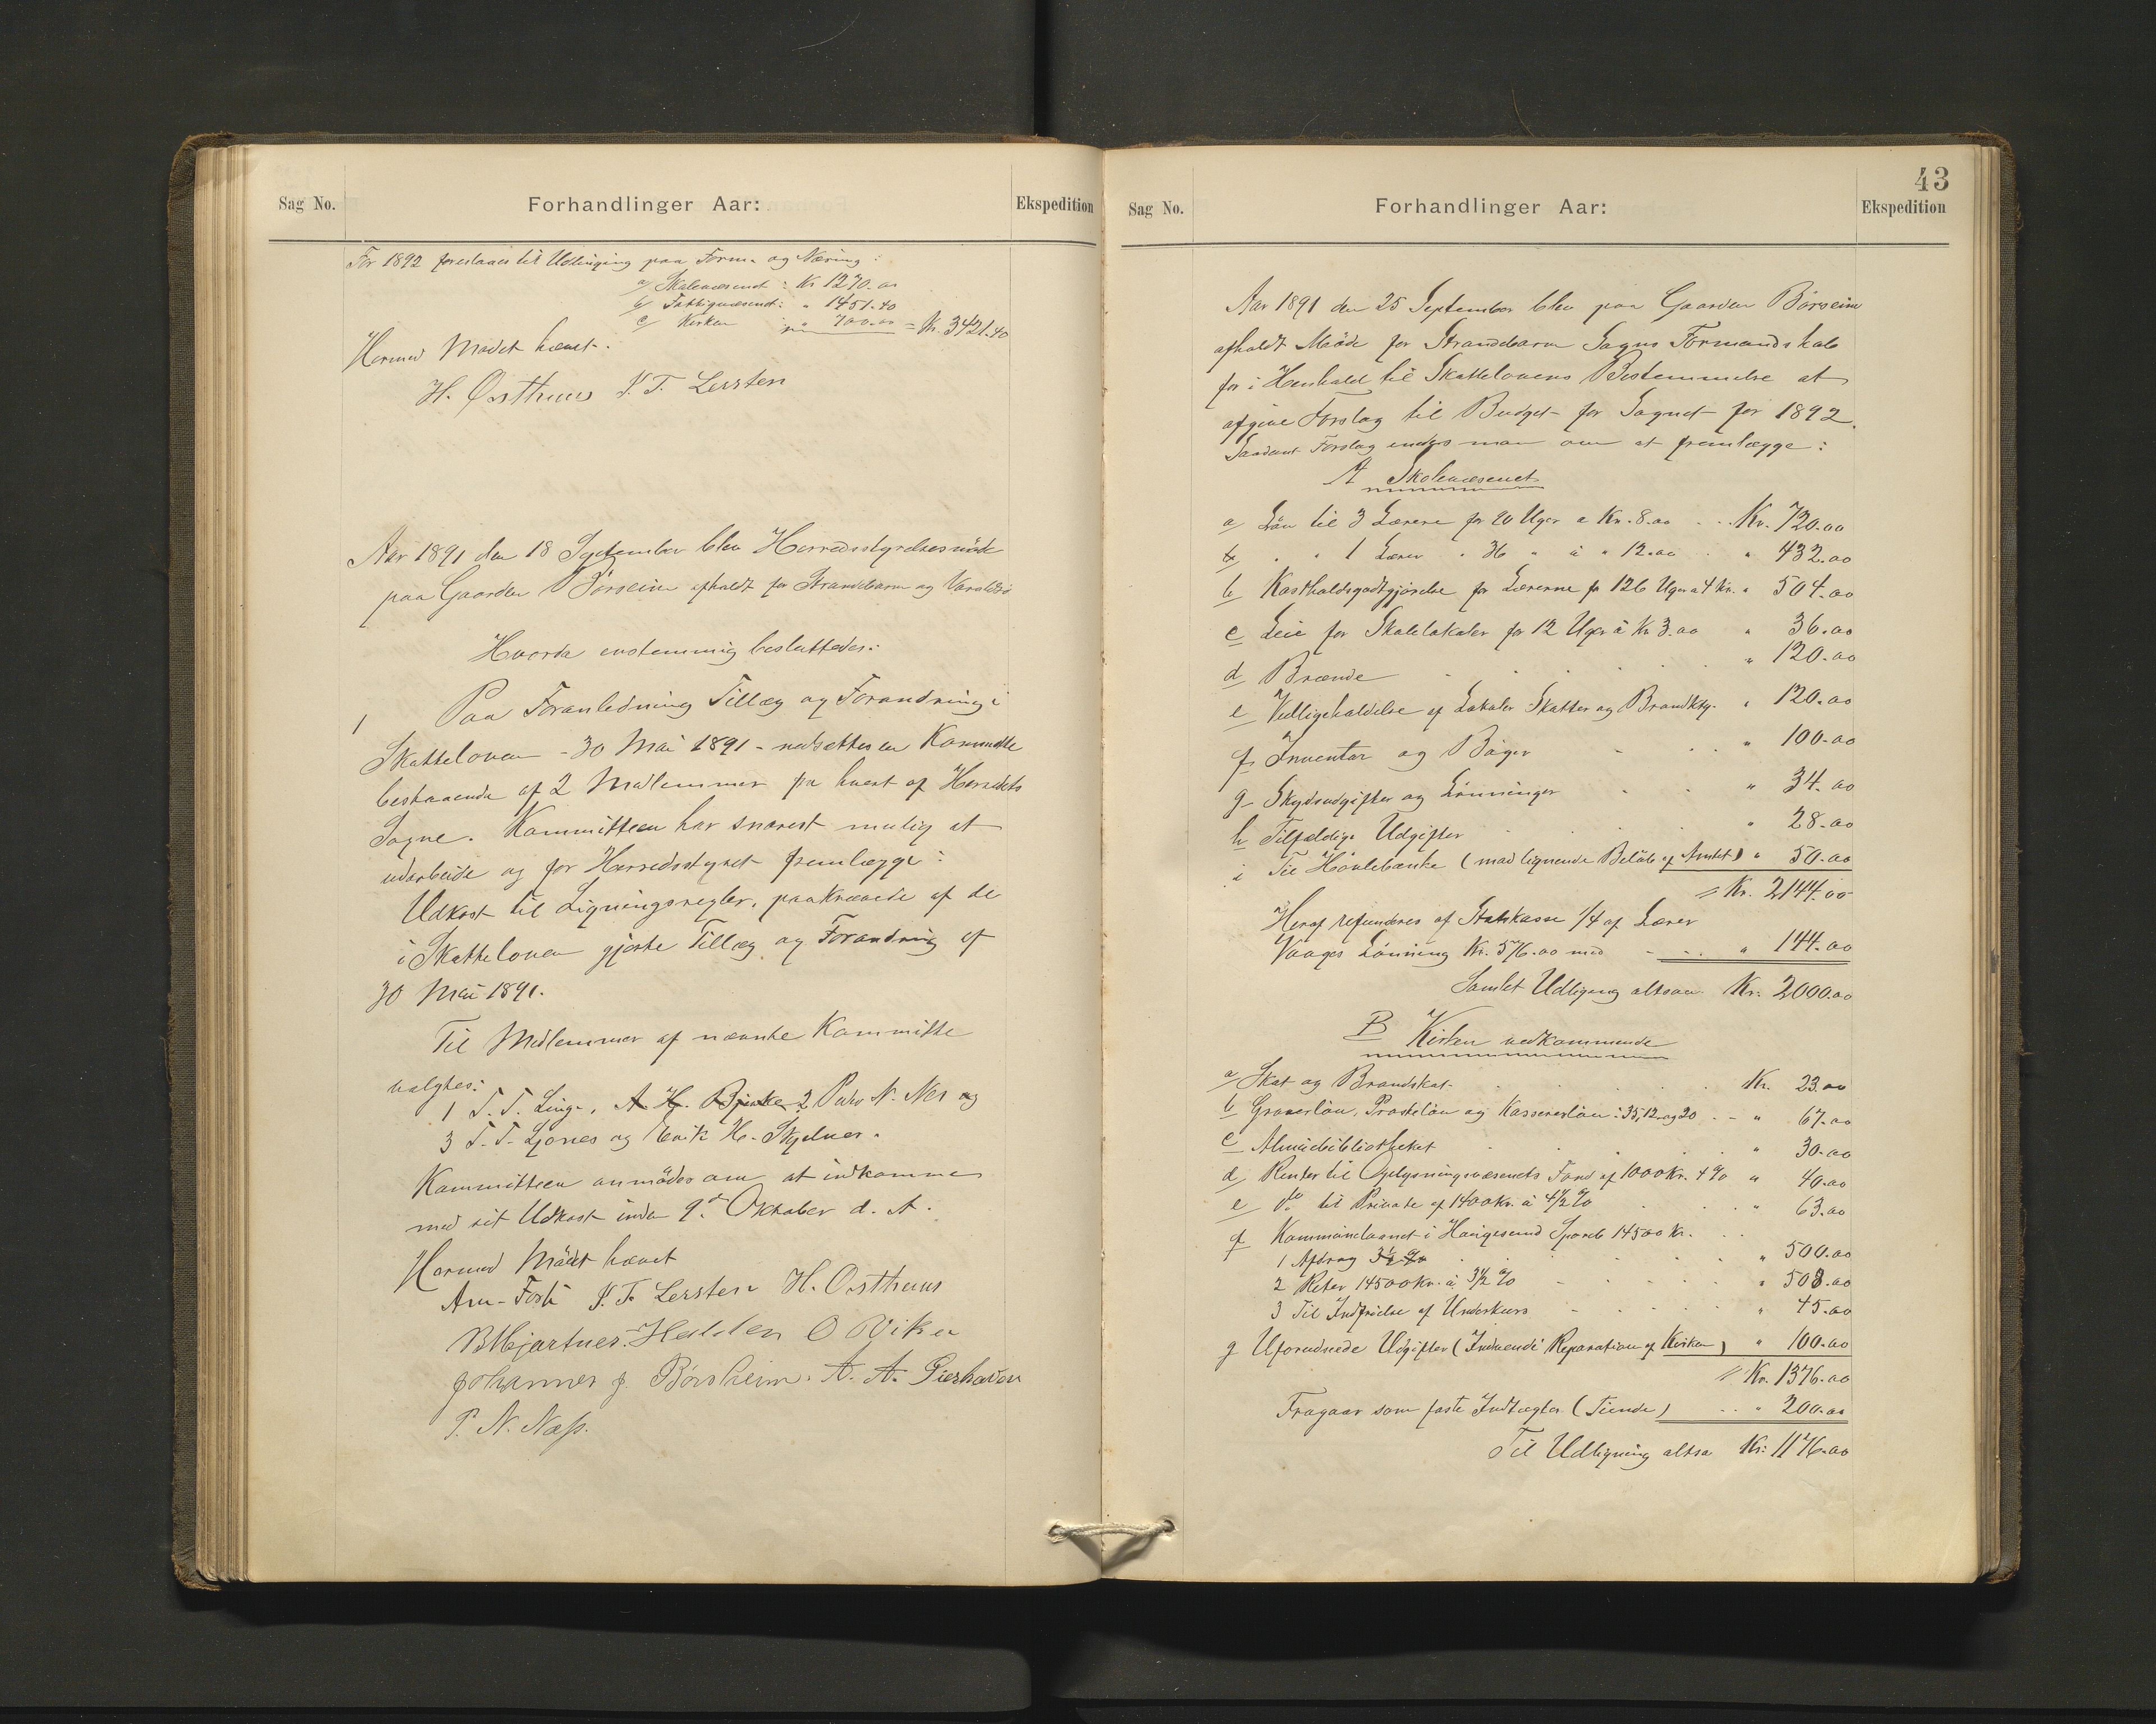 Sag No.
Forhandlinger Aar:
Ekspedition
For 1892 foreslaaes til Udligning paa Form. og Næring:
a/ Skolevæsenet: Kr 1270.00
b/ Fattigvæsenet: " 1451.40
c/ Kirken " 700.00 = Kr. 3421.40
Hermed Mødet hævet.
H. Østhuus J. T. Lersten
Aar 1891 den 18 September blev Herredsstyrelsesmöde
paa Gaarden Börseim afholdt for Strandebarm og Varaldsö
Hvorda enstemmig besluttedes:
1 Paa Foranledning Tillæg og Forandring i
Skatteloven - 30 Mai 1891 - nedsættes en Kommitte
bestaaende af 2 Medlemmer fra hvert af Herredets
Sogne. Kommitteen har snarest mulig at
udarbeide og for Herredsstyret fremlægge:
Udkast til Ligningsregler, paakrævede af de
i Skatteloven gjorte Tillæg og Forandring af
30 Mai 1891.
Til Medlemmer af nævnte Kommitte
valgtes:
1 T. T. Linge, A H. Bjerke 2 Peder N. Nes og
3 T. T. Ljones og Erik H. Skjelnes.
Kommitteen anmödes om at indkomme
med sit Udkast inden 9de Oktober d. A.
Hermed Mödet hævet
Arn- J. T. Lersten H. Østhuus
B Mjartnes. Halden O Viken
Johannes J. Börsheim. A. A.
P. N. Næss.
43
Sag No.
Forhandlinger Aar:
Ekspedition
Aar 1891 den 25 September blev paa Gaarden Börseim
afholdt Möde for Strandebarm Sogns Formandskab
for i Henhold til Skattelovens Bestemmelse at
afgive Forslag til Budget for Sognet for 1892.
Saadant Forslag enedes man om at fremlægge:
A Skolevæsenet
a/ Lön til 3 Lærere for 20 Uger a Kr. 8.00 . . . Kr. 720.00
" " 1 Lærer " 36 " à " 12.00 . " 432.00
b/ Kostholdsgodtgjörelse for Lærerne for 126 Uger a 4 Kr. " 504.00
c Leie for Skolelokaler for 12 Uger à Kr 3.00 " 36.00
d/ Brænde . . . . " 120.00
e Vedligeholdelse af Lokaler Skatter og Brandktg. " 120.00
f Inventar og Böger . . . " 100.00
g Skydsudgifter og Lönninger . . " 34.00
h Tilfældige Udgifter . . . " 28.00
i Til Hövlebænke (mod lignende Belöb af Amtet) " 50.00
= Kr. 2144.00
Heraf refunderes af Statskasse 1/4 af Lærer
Vaages Lönning Kr. 576.00 med - - . . " 144.00
Samlet Udligning altsaa Kr. 2000.00
B Kirken vedkommende
a/ Skat og Brandskat . . . . Kr. 23.00
b Graverlön, Prosteløn og Kassererlön: 35, 12 og 20 . - " 67.00
c Almuebibliotheket . . . . " 30.00
d/ Renter til Oplysningsvæsenets Fond af 1000 Kr. 4 % " 40.00
e do til Private af 1400 Kr. à 4 1/2 % . . " 63.00
f Kommunelaanet i Haugesund Spareb 14500 Kr. . .
1 Afdrag 3 1/2 % . . . . " 500.00
2 Reter 14500 Kr. à 3 1/2 % - - - - " 508.00
3 Til Indfrielse af Underkurs - - - . " 45.00
g Uforudsede Udgifter (Indvendi Reparation af Kirken) " 100.00
= Kr. 1376.00
Fragaar som faste Indtægter (Tiende) . . " 200.00
Til Udligning altsa Kr: 1176.00